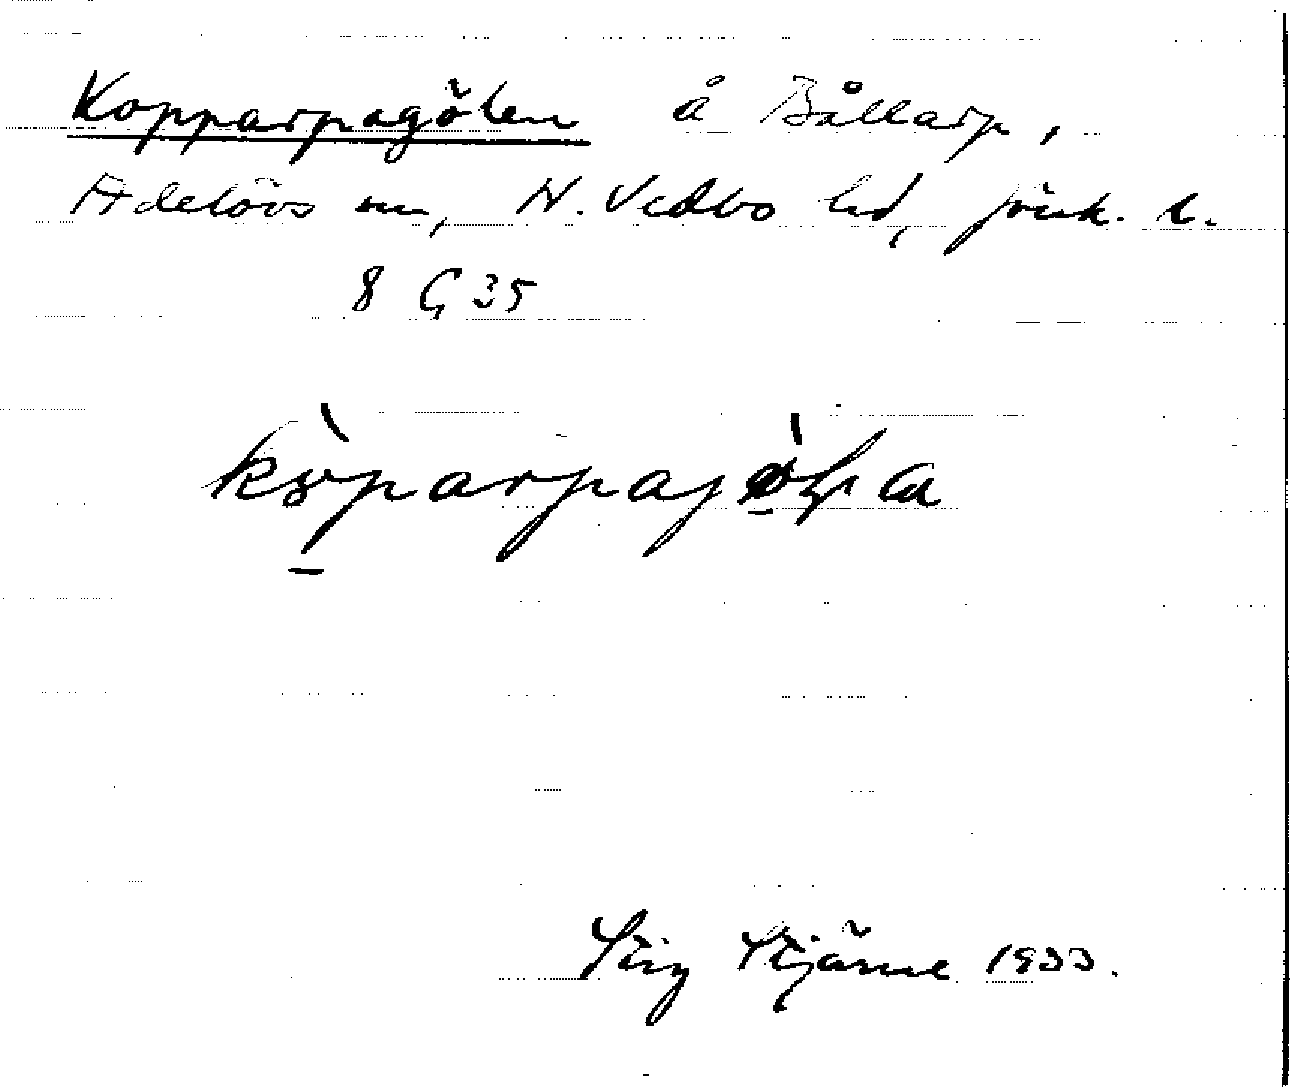 Kopparpagölen å Bållarp,
Adelövs sn, N. Vedbo hd, Jönk. l.
8 G 35
Stig Stjärne 1933.